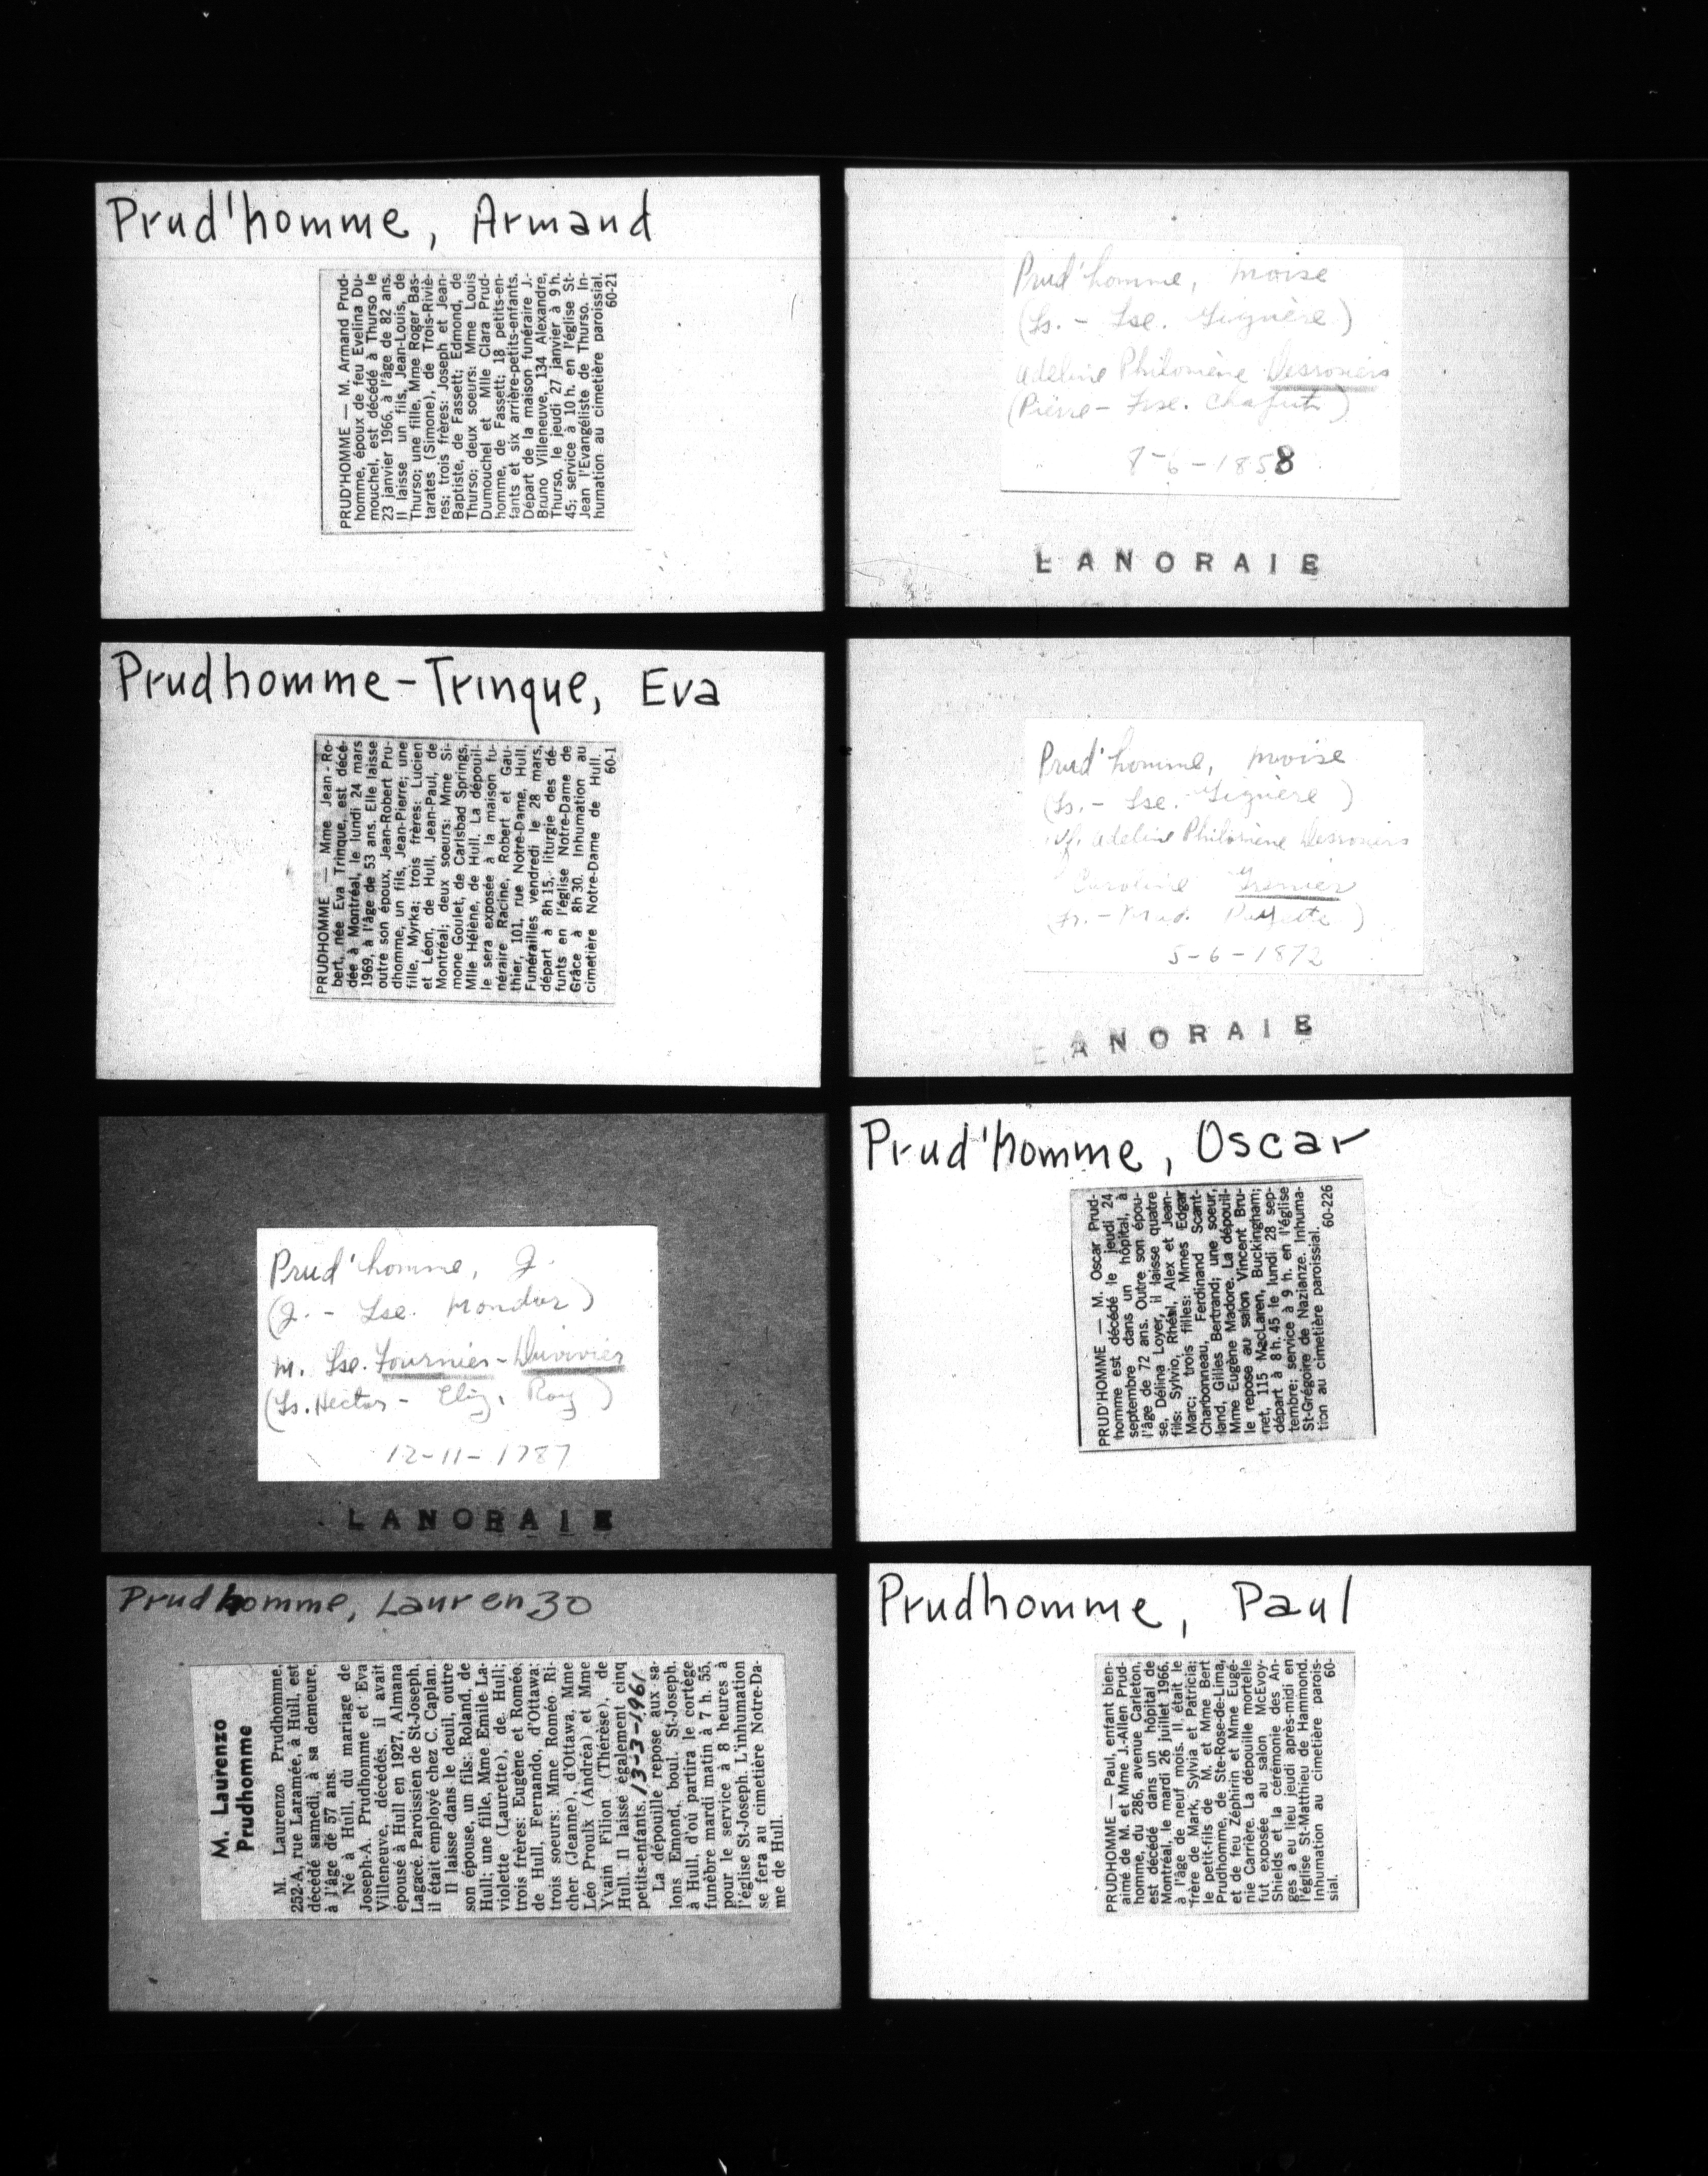 Prud'homme, Armand
PRUD'HOMME — M. Armand Prud-
homme, époux de feu Evelina Du-
mouchel, est décédé à Thurso le
23 janvier 1966, à l'âge de 82 ans.
Il laisse un fils, Jean-Louis, de
Thurso; une fille, Mme Roger Bas-
tarates (Simone), de Trois-Riviè-
res; trois frères: Joseph et Jean-
Baptiste, de Fassett; Edmond, de
Thurso; deux soeurs: Mme Louis
Dumouchel et Mlle Clara Prud-
homme, de Fassett; 18 petits-en-
fants et six arrière-petits-enfants.
Départ de la maison funéraire J.-
Bruno Villeneuve, 134 Alexandre,
Thurso, le jeudi 27 janvier à 9 h.
45; service à 10 h. en l'église St-
Jean l'Evangéliste de Thurso. In-
humation au cimetière paroissial.
60-21
Prudhomme-Trinque, Eva
PRUDHOMME — Mme Jean-Ro-
bert, née Eva Trinque, est décé-
dée à Montréal, le lundi 24 mars
1969, à l'âge de 53 ans. Elle laisse
outre son époux, Jean-Robert Pru-
dhomme, un fils, Jean-Pierre; une
fille, Myrka; trois frères: Lucien
et Léon, de Hull, Jean-Paul, de
Montréal; deux soeurs: Mme Si-
mone Goulet, de Carlsbad Springs,
Mlle Hélène, de Hull. La dépouil-
le sera exposée à la maison fu-
néraire Racine, Robert et Gau-
thier, 101, rue Notre-Dame, Hull,
Funérailles vendredi le 28 mars,
départ à 8h 15, liturgie des dé-
funts en l'église Notre-Dame de
Grâce à 8h 30. Inhumation au
cimetière Notre-Dame de Hull.
60-1
Prud'homme, J.
(J. - Lse. Mondor)
m. Lse. Fournier-Duvivier
(Ls. Hector - Eliz. Roy)
12-11-1787
LANORAIE
Prudhomme, Laurenzo
M. Laurenzo
Prudhomme
M. Laurenzo Prudhomme,
252-A, rue Laramée, à Hull, est
décédé samedi, à sa demeure,
à l'âge de 57 ans.
Né à Hull, du mariage de
Joseph-A. Prudhomme et Eva
Villeneuve, décédés, il avait
épousé à Hull en 1927, Almana
Lagacé. Paroissien de St-Joseph,
il était employé chez C. Caplan.
Il laisse dans le deuil, outre
son épouse, un fils: Roland, de
Hull; une fille, Mme Emile La-
violette (Laurette), de Hull;
trois frères: Eugène et Roméo,
de Hull, Fernando, d'Ottawa;
trois soeurs: Mme Roméo Ri-
cher (Jeanne), d'Ottawa, Mme
Léo Proulx (Andréa) et Mme
Yvain Filion (Thérèse), de
Hull. Il laisse également cinq
petits-enfants. 13-3-1961
La dépouille repose aux sa-
lons Emond, boul. St-Joseph,
à Hull, d'où partira le cortège
funèbre mardi matin à 7 h. 55,
pour le service à 8 heures à
l'église St-Joseph. L'inhumation
se fera au cimetière Notre-Da-
me de Hull.
Prud'homme, Moise
(Ls. - Lse. Ziguère)
Adeline Philomène Desrosiers
(Pierre - Frse. Chaput)
8-6-1858
LANORAIE
Prud'homme, Moise
(Ls. - Lse. Ziguère)
vf. Adeline Philomène Desrosiers
Caroline Grenier
5-6-1872
LANORAIE
Prud'homme, Oscar
PRUD'HOMME — M. Oscar Prud-
homme est décédé le jeudi 24
septembre dans un hôpital, à
l'âge de 72 ans. Outre son épou-
se, Délina Loyer, il laisse quatre
fils: Sylvio, Rhéal, Alex et Jean-
Marc; trois filles: Mmes Edgar
Charbonneau, Ferdinand Scant-
land, Gilles Bertrand; une soeur,
Mme Eugène Madore. La dépouil-
le repose au salon Vincent Bru-
net, 115 MacLaren, Buckingham;
départ à 8 h. 45 le lundi 28 sep-
tembre; service à 9 h. en l'église
St-Grégoire de Nazianze. Inhuma-
tion au cimetière paroissial.
60-226
Prudhomme, Paul
PRUDHOMME — Paul, enfant bien-
aimé de M. et Mme J.-Allen Prud-
homme, du 286, avenue Carleton,
est décédé dans un hôpital de
Montréal, le mardi 26 juillet 1966,
à l'âge de neuf mois. Il était le
frère de Mark, Sylvia et Patricia;
le petit-fils de M. et Mme Bert
Prudhomme, de Ste-Rose-de-Lima,
et de feu Zéphirin et Mme Eugé-
nie Carrière. La dépouille mortelle
fut exposée au salon McEvoy-
Shields et la cérémonie des An-
ges a eu lieu jeudi après-midi en
l'église St-Matthieu de Hammond.
Inhumation au cimetière parois-
sial. 60-